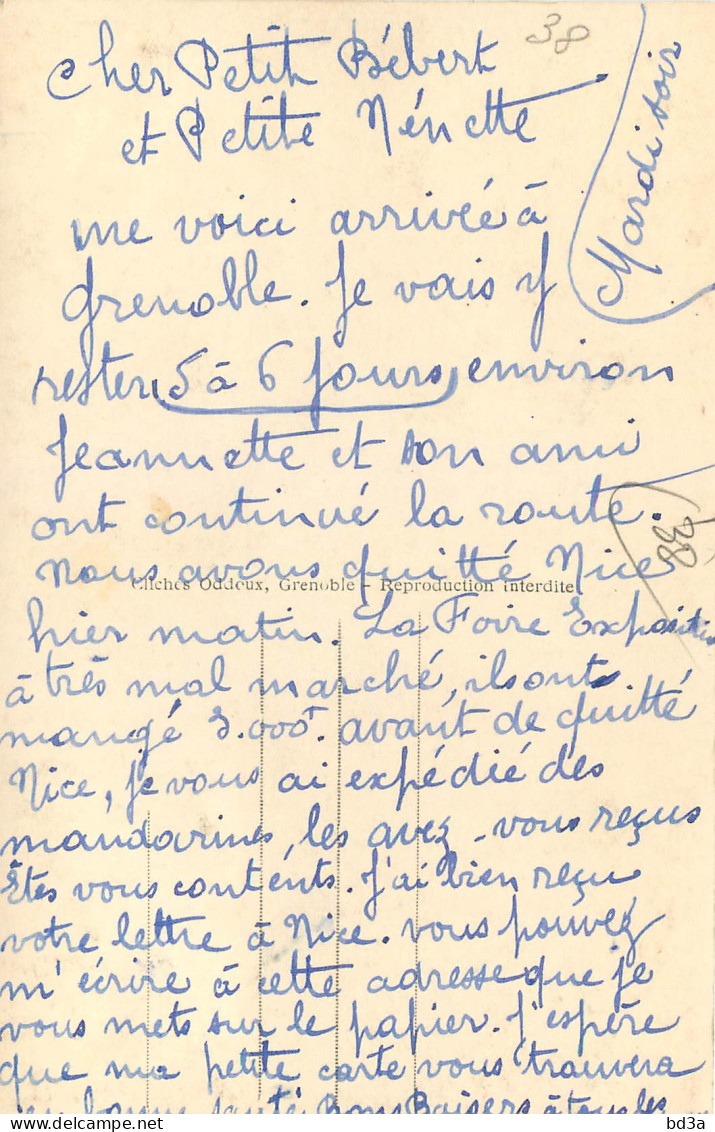 38
Mardi soir
Cher Petit Bébert
et Petite Nénette
me voici arrivée à
Grenoble. Je vais y
rester 5 à 6 jours environ
Jeannette et son ami
ont continué la route.
38
Nous avons quitté Nice
Clichés Oddoux, Grenoble - Reproduction interdite
hier matin. La Foire Exposition
à très mal marché, ils ont
mangé 5.000f. avant de quitté
Nice, je vous ai expédié des
mandarines, les avez-vous reçus
Êtes vous contents. J'ai bien reçu
votre lettre à Nice. vous pouvez
m'écrire à cette adresse que je
vous mets sur le papier. J'espère
que ma petite carte vous trouvera
en bonne santé Bons Baisers à tous les
bd3a